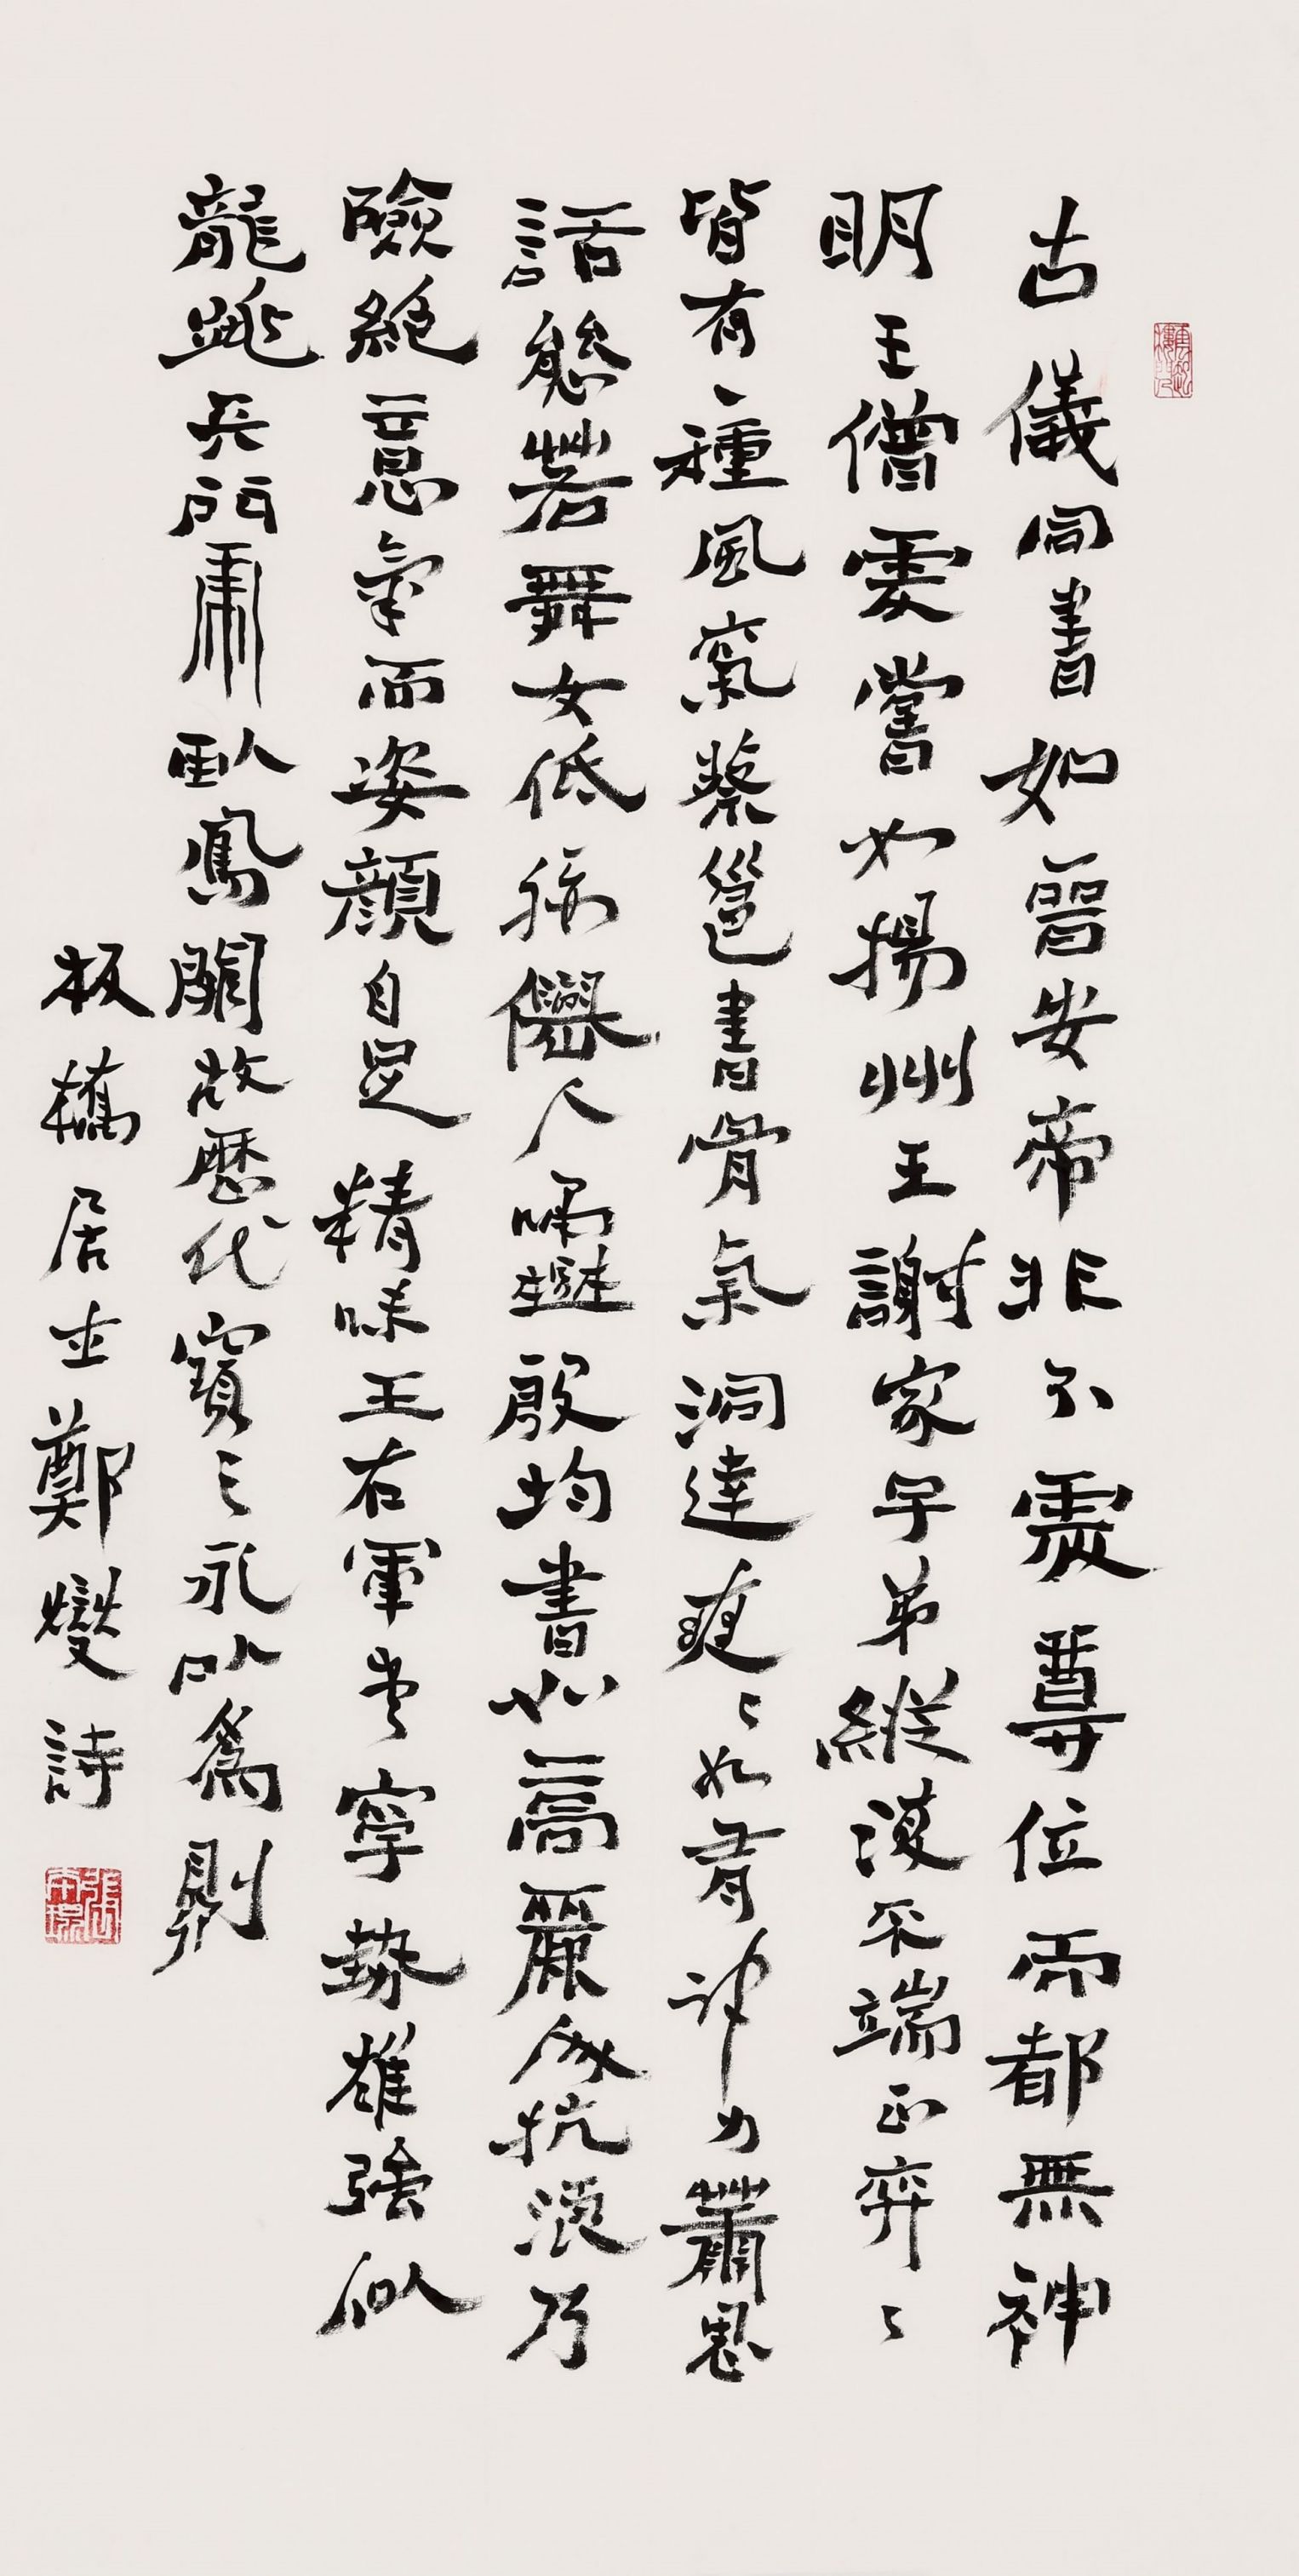 古儀同書如晉安帝非不處尊位而都無神
明王僧虔嘗如揚州王謝家子弟縱復不端正奕〻
皆有一種風氣蔡邕書骨氣洞達爽〻如有神力蕭思
話態若舞女低腰僊人嘯樹殷均書如高麗人抗浪乃
險絕意氣而姿顏自足精味王右軍書字勢雄強似
龍跳天門虎臥鳳闕故歷代寶之永以為則
板橋居士鄭燮詩